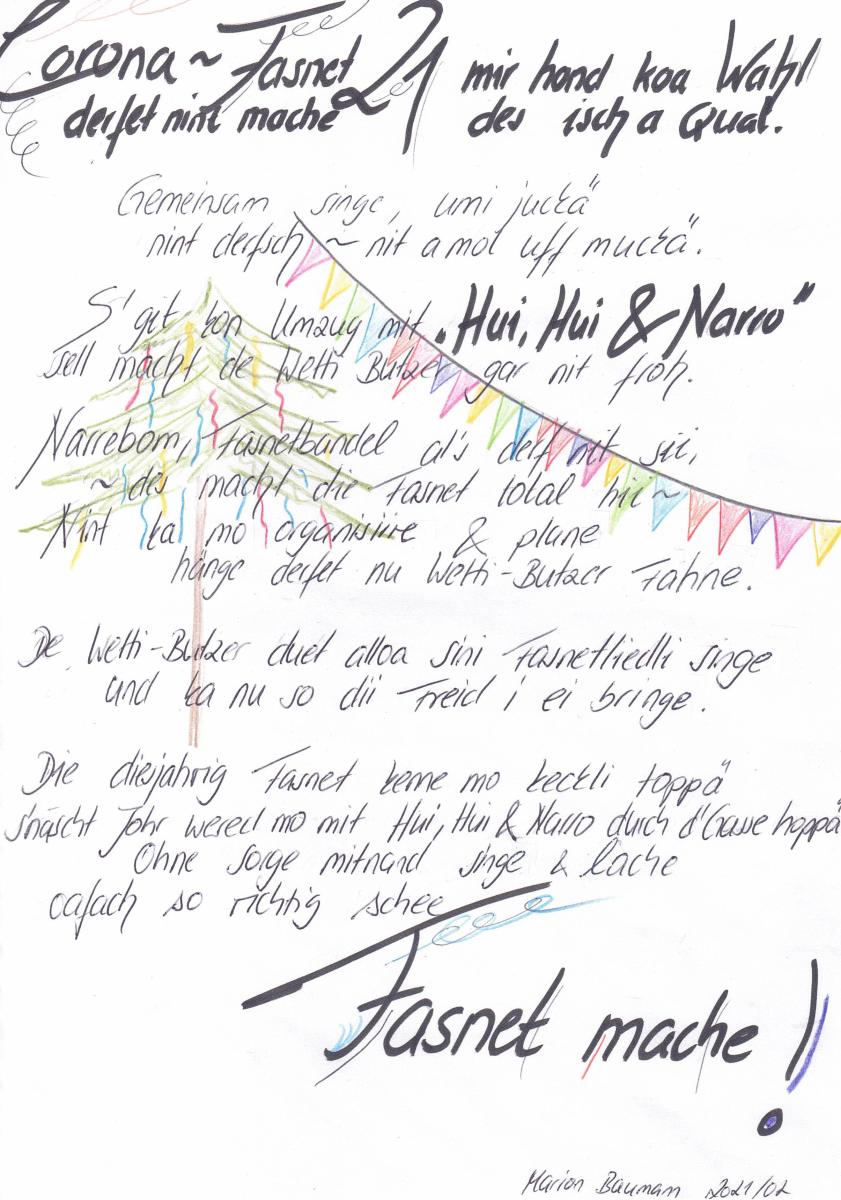 Corona ~ Fasnet 21 mir hond koa Wahl
derfet nint mache des isch a Qual.
Gemeinsam singe, umi juckä
nint derfsch ~ nit amol uff muckä.
S' git kon Umzug mit „Hui, Hui & Narro"
sell macht de Wetti Butzer gar nit froh.
Narrebom, Fasnetbändel al's derf nit sii,
~ des macht die Fasnet total hii ~
Nint ka mo organisiire & plane
hänge derfet nu Wetti-Butzer Fahne.
De Wetti-Butzer duet alloa sini Fasnetliedli singe
und ka nu so dii Freid i ei bringe.
Die diesjährig Fasnet keme mo keckli toppä
s'näscht Johr wered mo mit Hui, Hui & Narro durch d'Gasse hoppä
Ohne sorge mitnand singe & lache
oafach so richtig schee
Fasnet mache!
Marion Baumann 2021/02